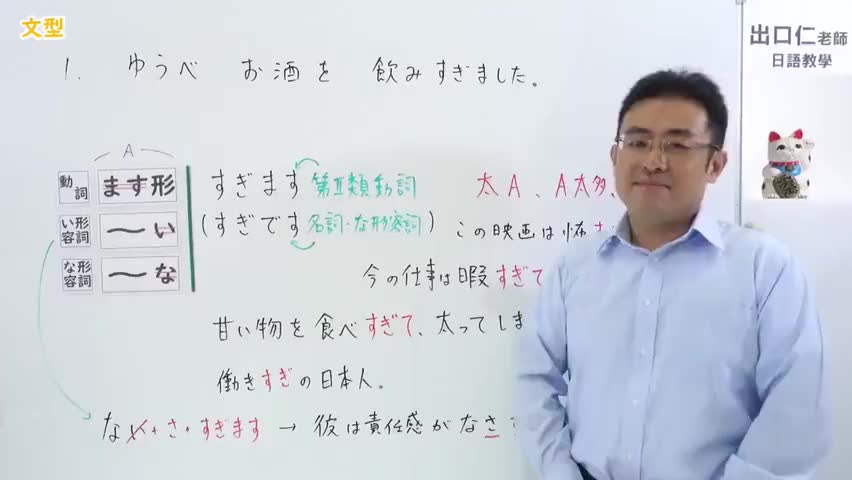 文型
出口仁老師
日語教學
1. ゆうべ お酒を 飲みすぎました。
A
動詞 ます形
い形容詞 〜い
な形容詞 〜な
すぎます 第Ⅱ類動詞
(すぎです 名詞・な形容詞)
太A、A太多、
この映画は怖さ
今の仕事は暇すぎて
甘い物を食べすぎて、太ってしま
働きすぎの日本人。
ない+さ+すぎます → 彼は責任感がなさす